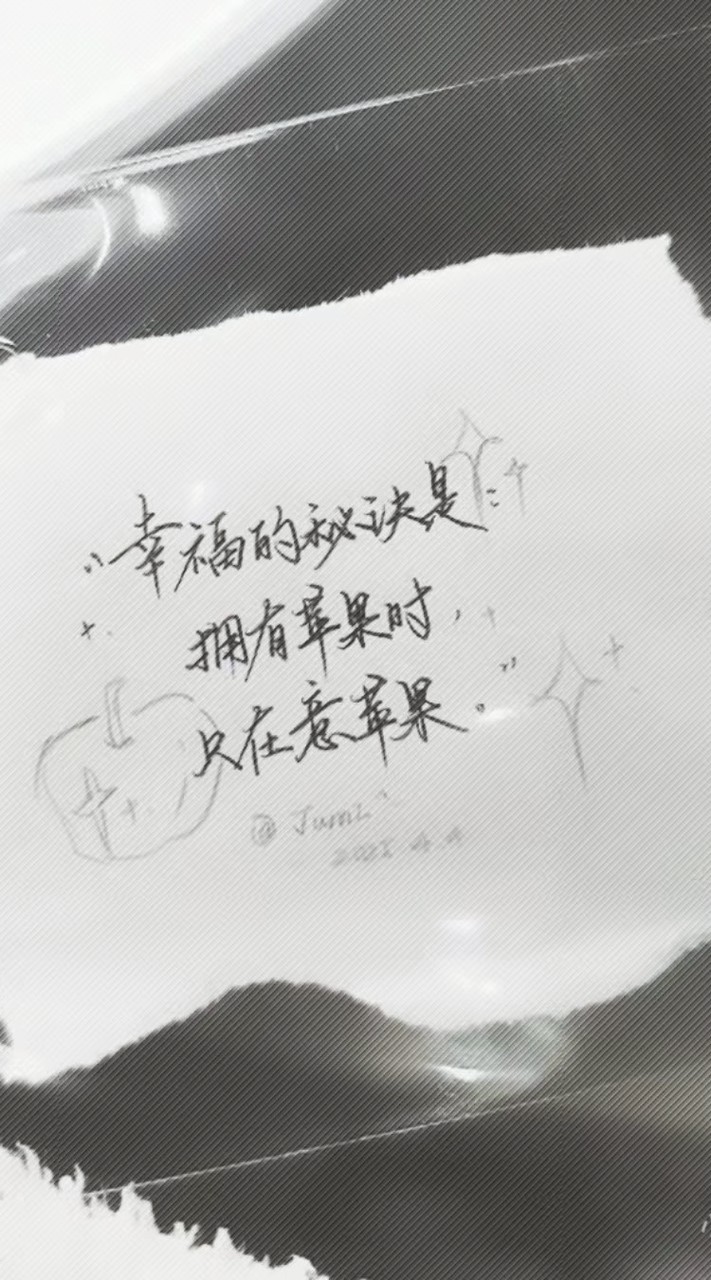 “幸福的秘诀是：
拥有苹果时，
只在意苹果。”